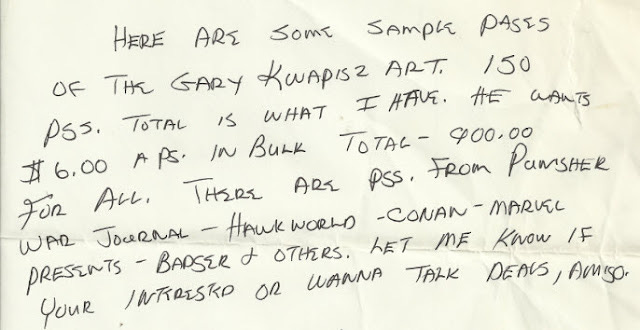 HERE ARE SOME SAMPLE PAGES
OF THE GARY KWAPISZ ART. 150
PGS. TOTAL IS WHAT I HAVE. HE WANTS
$6.00 A PG. IN BULK TOTAL - 900.00
FOR ALL. THERE ARE PGS. FROM PUNISHER
WAR JOURNAL - HAWKWORLD - CONAN - MARVEL
PRESENTS - BADGER & OTHERS. LET ME KNOW IF
YOUR INTERESTED OR WANNA TALK DEALS, AMIGO.